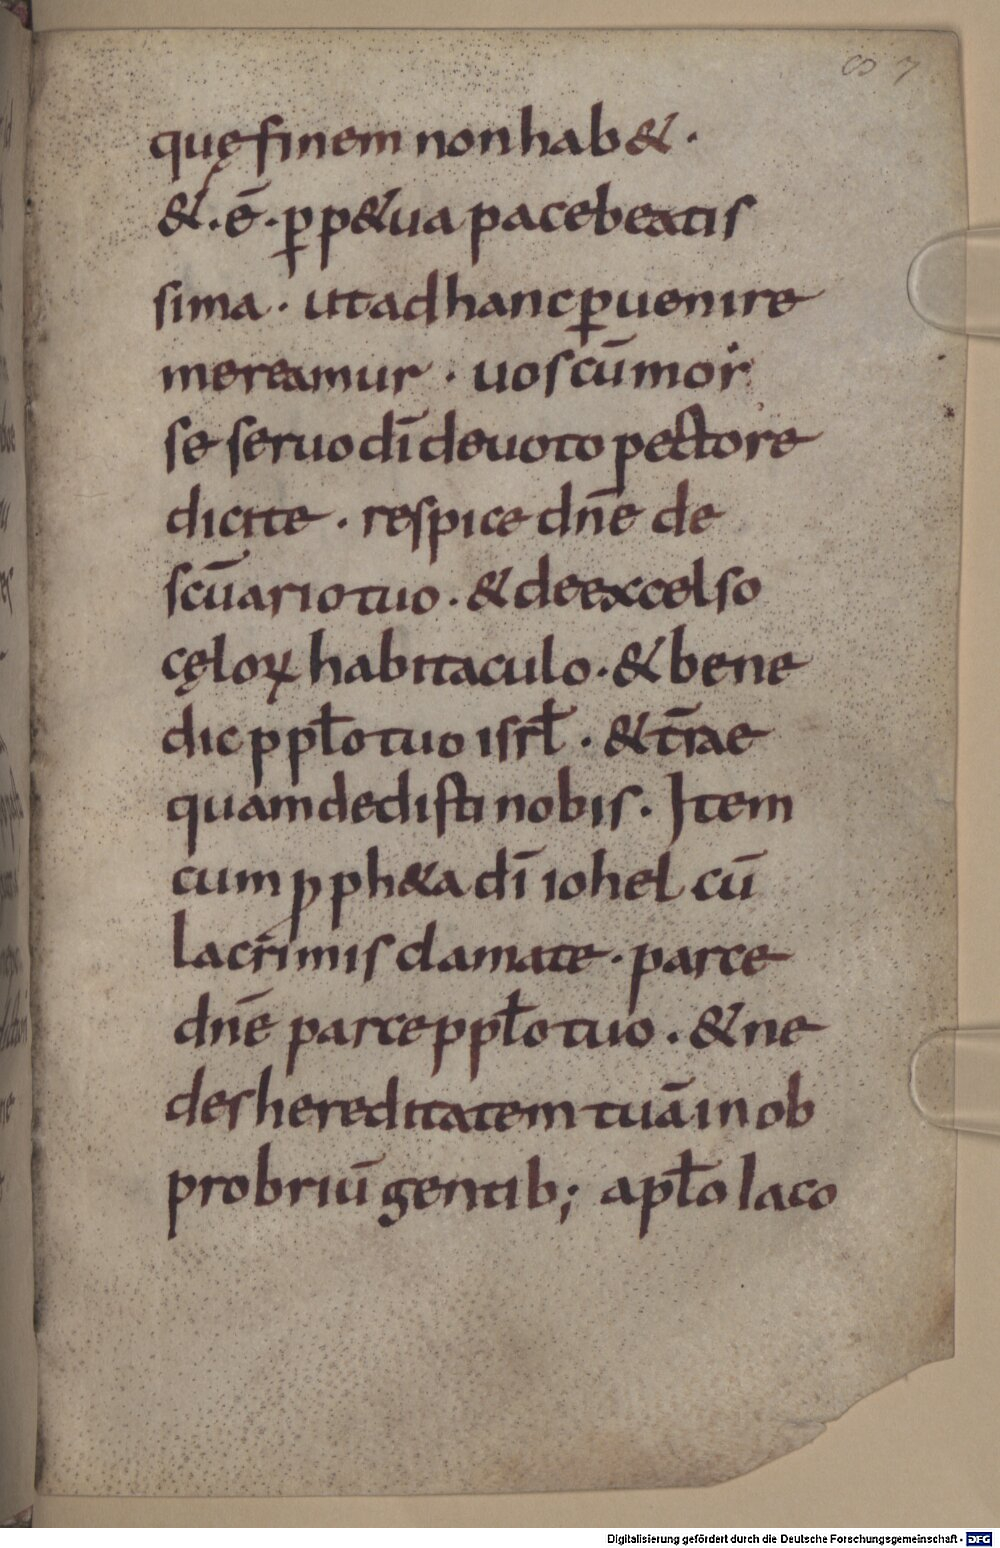 87
quę finem non hab&.
&. ē. p̱ p&ua pace beatis
sima. ut ad hanc p̱uenire
mereamur. uos cū mor
se seruo dī deuoto pectore
dicite. respice dn̄e de
scūario tuo. & de excelso
cęloꝝ habitaculo. & bene
dic ppło tuo isrł. & tr̄ae
quam dedisti nobis. Item
cum ꝓph&a dī iohel cū
lacrimis clamate. parce
dn̄e parce ppło tuo. & ne
des hereditatem tuā in ob
probriū gentib; apło iaco
Digitalisierung gefördert durch die Deutsche Forschungsgemeinschaft - DFG